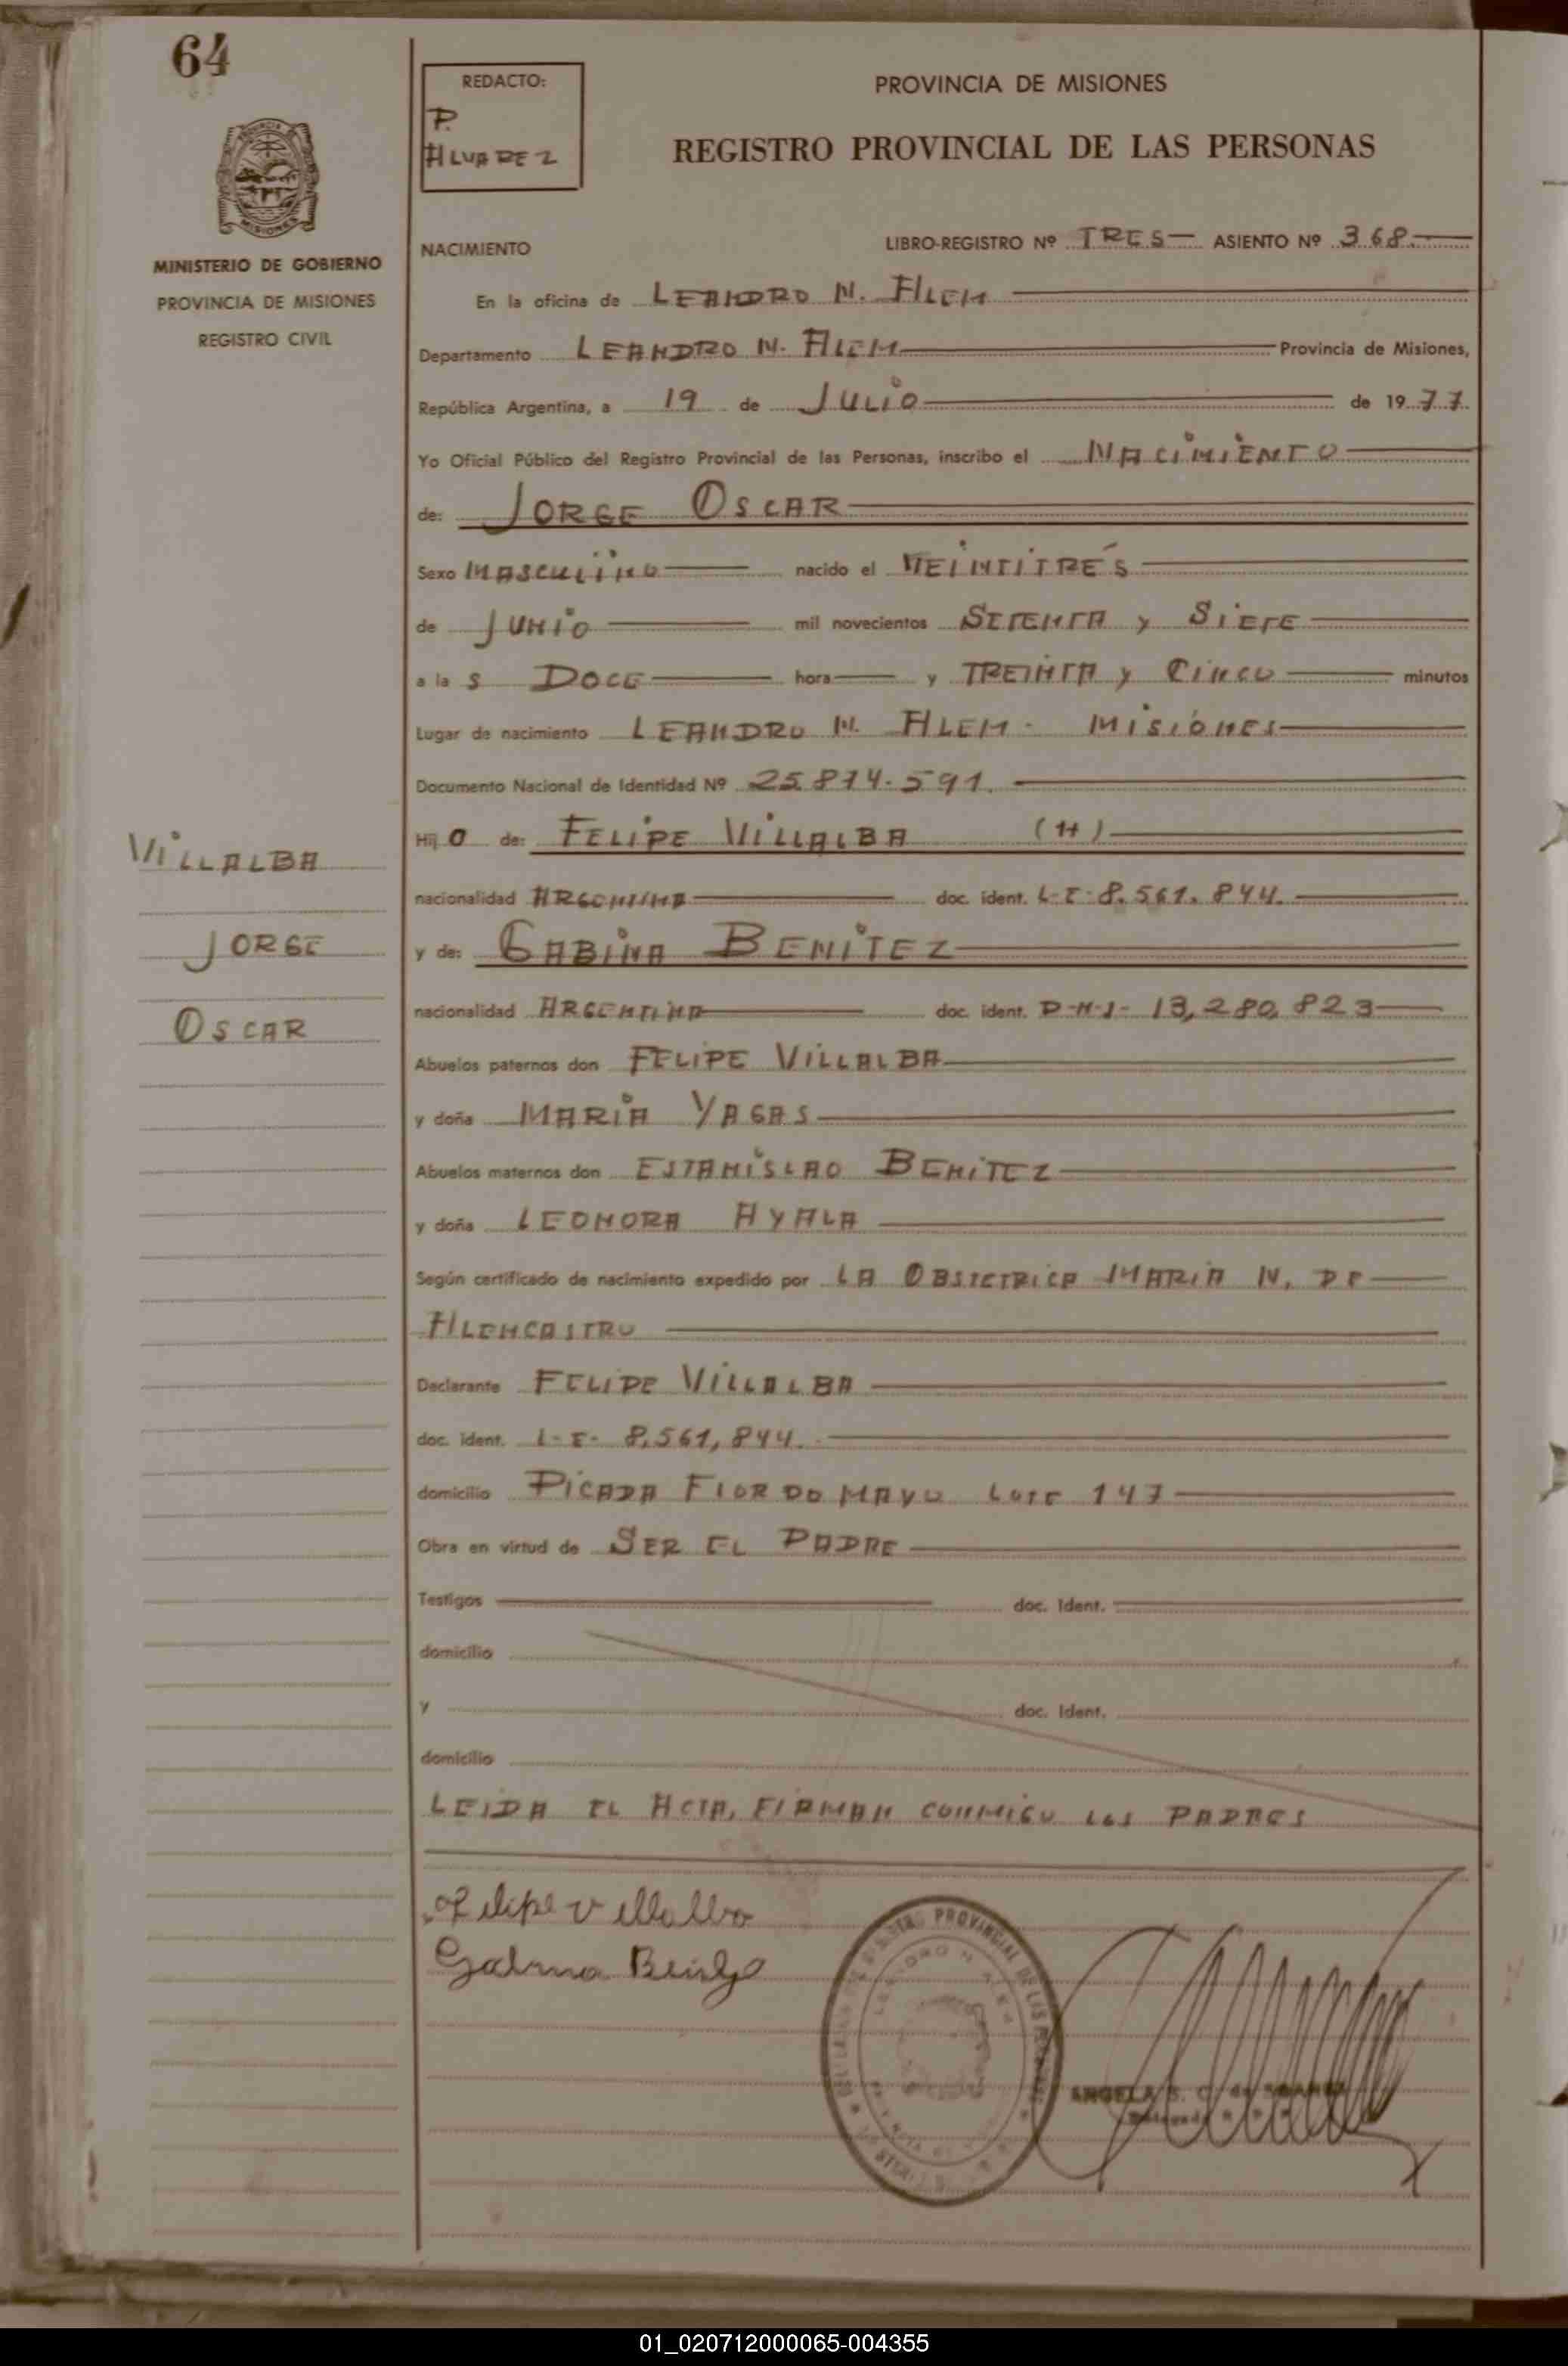 64
REDACTO:
P.
ALVAREZ
PROVINCIA DE MISIONES
REGISTRO PROVINCIAL DE LAS PERSONAS
MINISTERIO DE GOBIERNO
PROVINCIA DE MISIONES
REGISTRO CIVIL
NACIMIENTO
LIBRO-REGISTRO Nº TRES ASIENTO Nº 368.
En la oficina de LEANDRO N. ALEM
Departamento LEANDRO N. ALEM Provincia de Misiones,
República Argentina, a 19 de JULIO de 1977.
Yo Oficial Público del Registro Provincial de las Personas, inscribo el NACIMIENTO
de: JORGE OSCAR
Sexo MASCULINO nacido el VEINTITRÉS
de JUNIO mil novecientos SETENTA y SIETE
a la s DOCE hora y TREINTA y CINCO minutos
Lugar de nacimiento LEANDRO N. ALEM - MISIONES
Documento Nacional de Identidad Nº 25.874.591.
Hij o de: FELIPE VILLALBA (H)
VILLALBA
nacionalidad ARGENTINA doc. ident. L-E-8.561.844.
JORGE
y de: GABINA BENITEZ
OSCAR
nacionalidad ARGENTINA doc. ident. D-N-I- 13,280,823
Abuelos paternos don FELIPE VILLALBA
y doña MARIA YAGAS
Abuelos maternos don ESTANISLAO BENITEZ
y doña LEONORA AYALA
Según certificado de nacimiento expedido por LA OBSTETRICA MARIA N. DE
ALENCASTRO
Declarante FELIPE VILLALBA
doc. ident. L-E- 8,561,844.
domicilio PICADA FLOR DO MAYO LOTE 147
Obra en virtud de SER EL PADRE
Testigos doc. Ident.
domicilio
y doc. Ident.
domicilio
LEIDA EL ACTA, FIRMAN CONMIGO LOS PADRES
Felipe Villalba
Gabina
PROVINCIAL DE LAS
ANGELA S. C. de
01_020712000065-004355